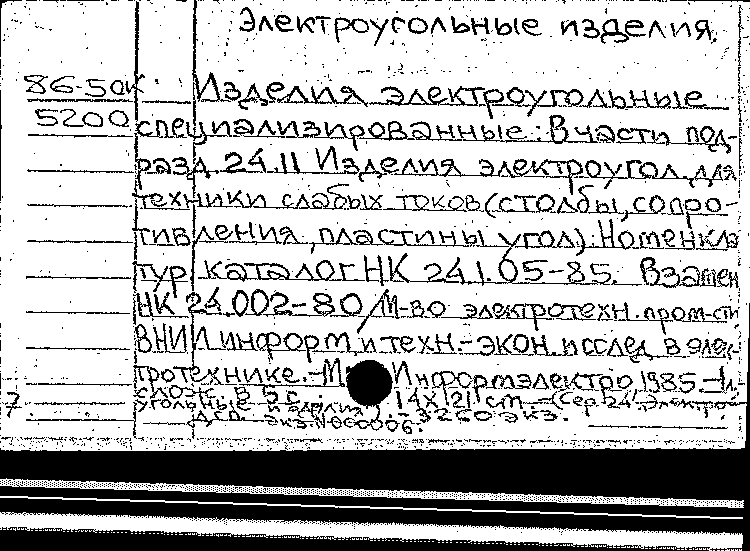 Электроугольные изделия
86-50к Изделия электроугольные
5200 специализированные: В части под-
разд. 24.11 Изделия электроугол. для
техники слабых токов (столбы, сопро-
тивления, пластины угол): Номенкла
тур. каталог НК 24.1.05-85. Взамен
НК 24.002-80/М-во электротехн. пром-сти
ВНИИ информ. и техн.-экон. исслед. в элек-
тротехнике.-М Информэлектро, 1985.-1л.
слож. в 5 с. 14X21 cm -(Сер. 24, Электро-
7 угольные изделия). - 3260 экз.
ДСП. Экз. N000006.